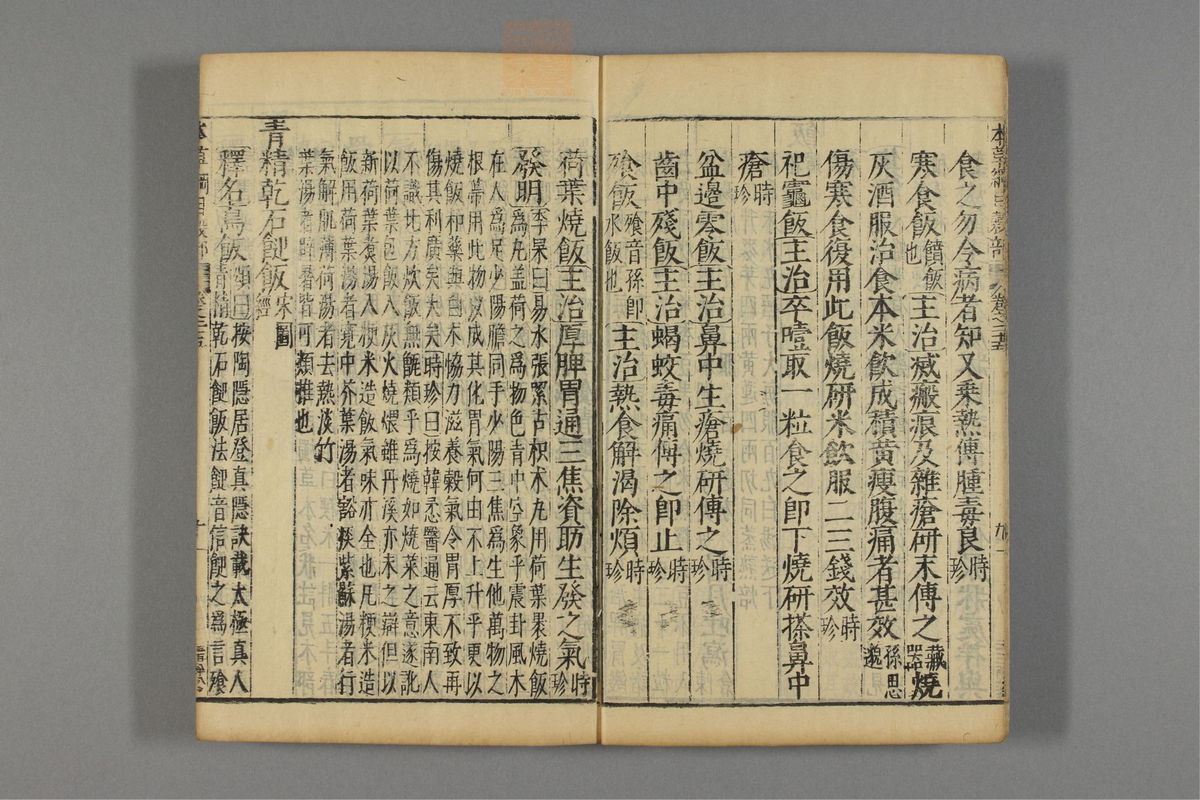 食之勿令病者知又乘熱傅腫毒良時珍
寒食飯饙飯也主治滅瘢痕及雜瘡研末傅之藏器燒
灰酒服治食本米飲成積黃瘦腹痛者甚效孫思邈
傷寒食復用此飯燒研米飲服二三錢效時珍
祀竈飯主治卒噎取一粒食之即下燒研搽鼻中
瘡時珍
盆邊零飯主治鼻中生瘡燒研傅之時珍
齒中殘飯主治蝎蛟毒痛傅之即止時珍
飧飯飧音孫即水飯也主治熱食解渴除煩時珍
荷葉燒飯主治厚脾胃通三焦資助生發之氣時珍
發明李杲曰易水張潔古枳朮丸用荷葉裹燒飯
為丸蓋荷之為物色青中空象乎震卦風木
在人為足少陽膽同手少陽三焦為生化萬物之
根蒂用此物以成其化胃氣何由不上升乎更以
燒飯和藥與白朮協力滋養穀氣令胃厚不致再
傷其利廣矣大矣時珍曰按韓𢘅醫通云東南人
不識北方炊飯無甑類乎為燒如燒菜之意遂訛
以荷葉包飯入灰火燒煨雖丹溪亦未之辯但以
新荷葉煑湯入粳米造飯氣味亦全也凡粳米造
飯用荷葉湯者寬中芥葉湯者豁痰紫蘇湯者行
氣解肌薄荷湯者去熱淡竹
葉湯者辟暑皆可類推也
青精乾石䭀飯宋圖經
釋名烏飯頌曰按陶隱居登真隱訣載太極真人
青精乾石䭀飯法䭀音信䭀之為言飱